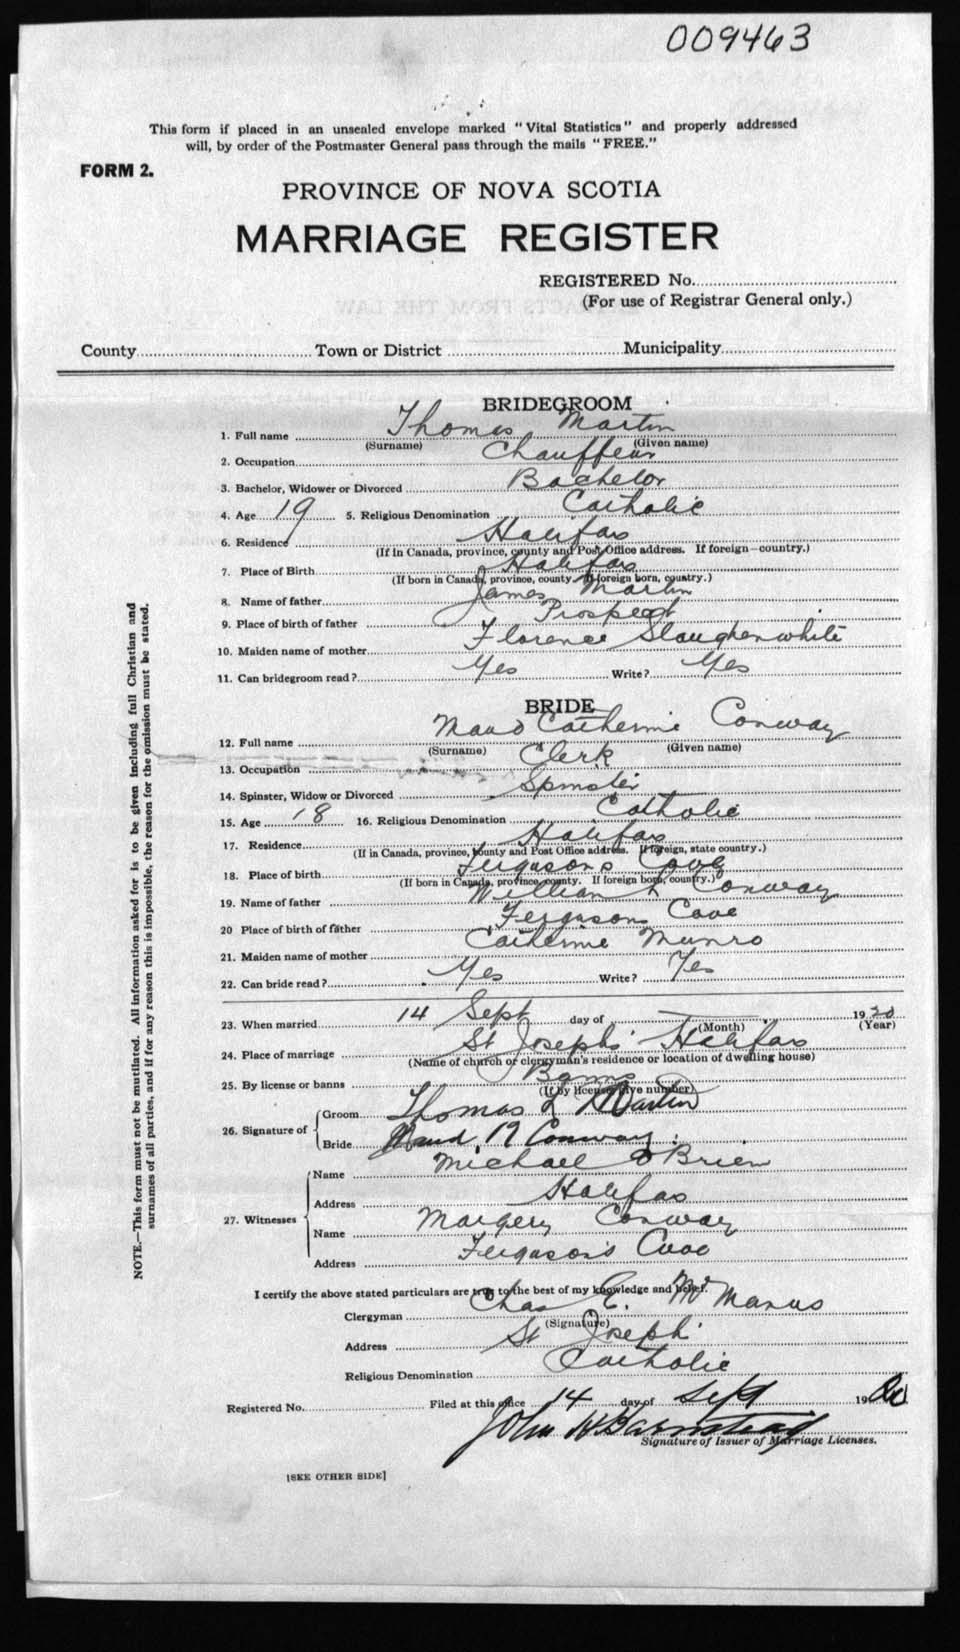 009463
This form if placed in an unsealed envelope marked "Vital Statistics" and properly addressed
will, by order of the Postmaster General pass through the mails "FREE."
FORM 2.
PROVINCE OF NOVA SCOTIA
MARRIAGE REGISTER
REGISTERED No.
(For use of Registrar General only.)
County Town or District Municipality
BRIDEGROOM
1. Full name Thomas Martin
(Surname) (Given name)
2. Occupation Chauffeur
3. Bachelor, Widower or Divorced Bachelor
4. Age 19 5. Religious Denomination Catholic
6. Residence Halifax
(If in Canada, province, county and Post Office address. If foreign—country.)
7. Place of Birth Halifax
(If born in Canada, province, county. If foreign born, country.)
8. Name of father James Martin
9. Place of birth of father Prospect
10. Maiden name of mother Florence Slaughenwhite
11. Can bridegroom read? Yes Write? Yes
BRIDE
12. Full name Maud Catherine Conway
(Surname) (Given name)
13. Occupation Clerk
14. Spinster, Widow or Divorced Spinster
15. Age 18 16. Religious Denomination Catholic
17. Residence Halifax
(If in Canada, province, county and Post Office address. If foreign, state country.)
18. Place of birth Fergusons Cove
(If born in Canada, province, county. If foreign born, country.)
19. Name of father William L Conway
20 Place of birth of father Fergusons Cove
21. Maiden name of mother Catherine Munro
22. Can bride read? Yes Write? Yes
23. When married 14 Sept day of 1920
(Month) (Year)
24. Place of marriage St Joseph's Halifax
(Name of church or clergyman's residence or location of dwelling house)
25. By license or banns Banns
(If by license give number)
26. Signature of Groom Thomas L Martin
Bride Maud Conway
27. Witnesses Name Michael O'Brien
Address Halifax
Name Margery Conway
Address Ferguson's Cove
I certify the above stated particulars are true to the best of my knowledge and belief.
Clergyman Chas E. McManus
(Signature)
Address St Joseph's
Religious Denomination Catholic
Registered No. Filed at this office 14 day of Sept 1920
John H Barnstead
Signature of Issuer of Marriage Licenses.
[SEE OTHER SIDE]
NOTE.—This form must not be mutilated. All information asked for is to be given including full Christian and
surnames of all parties, and if for any reason this is impossible, the reason for the omission must be stated.